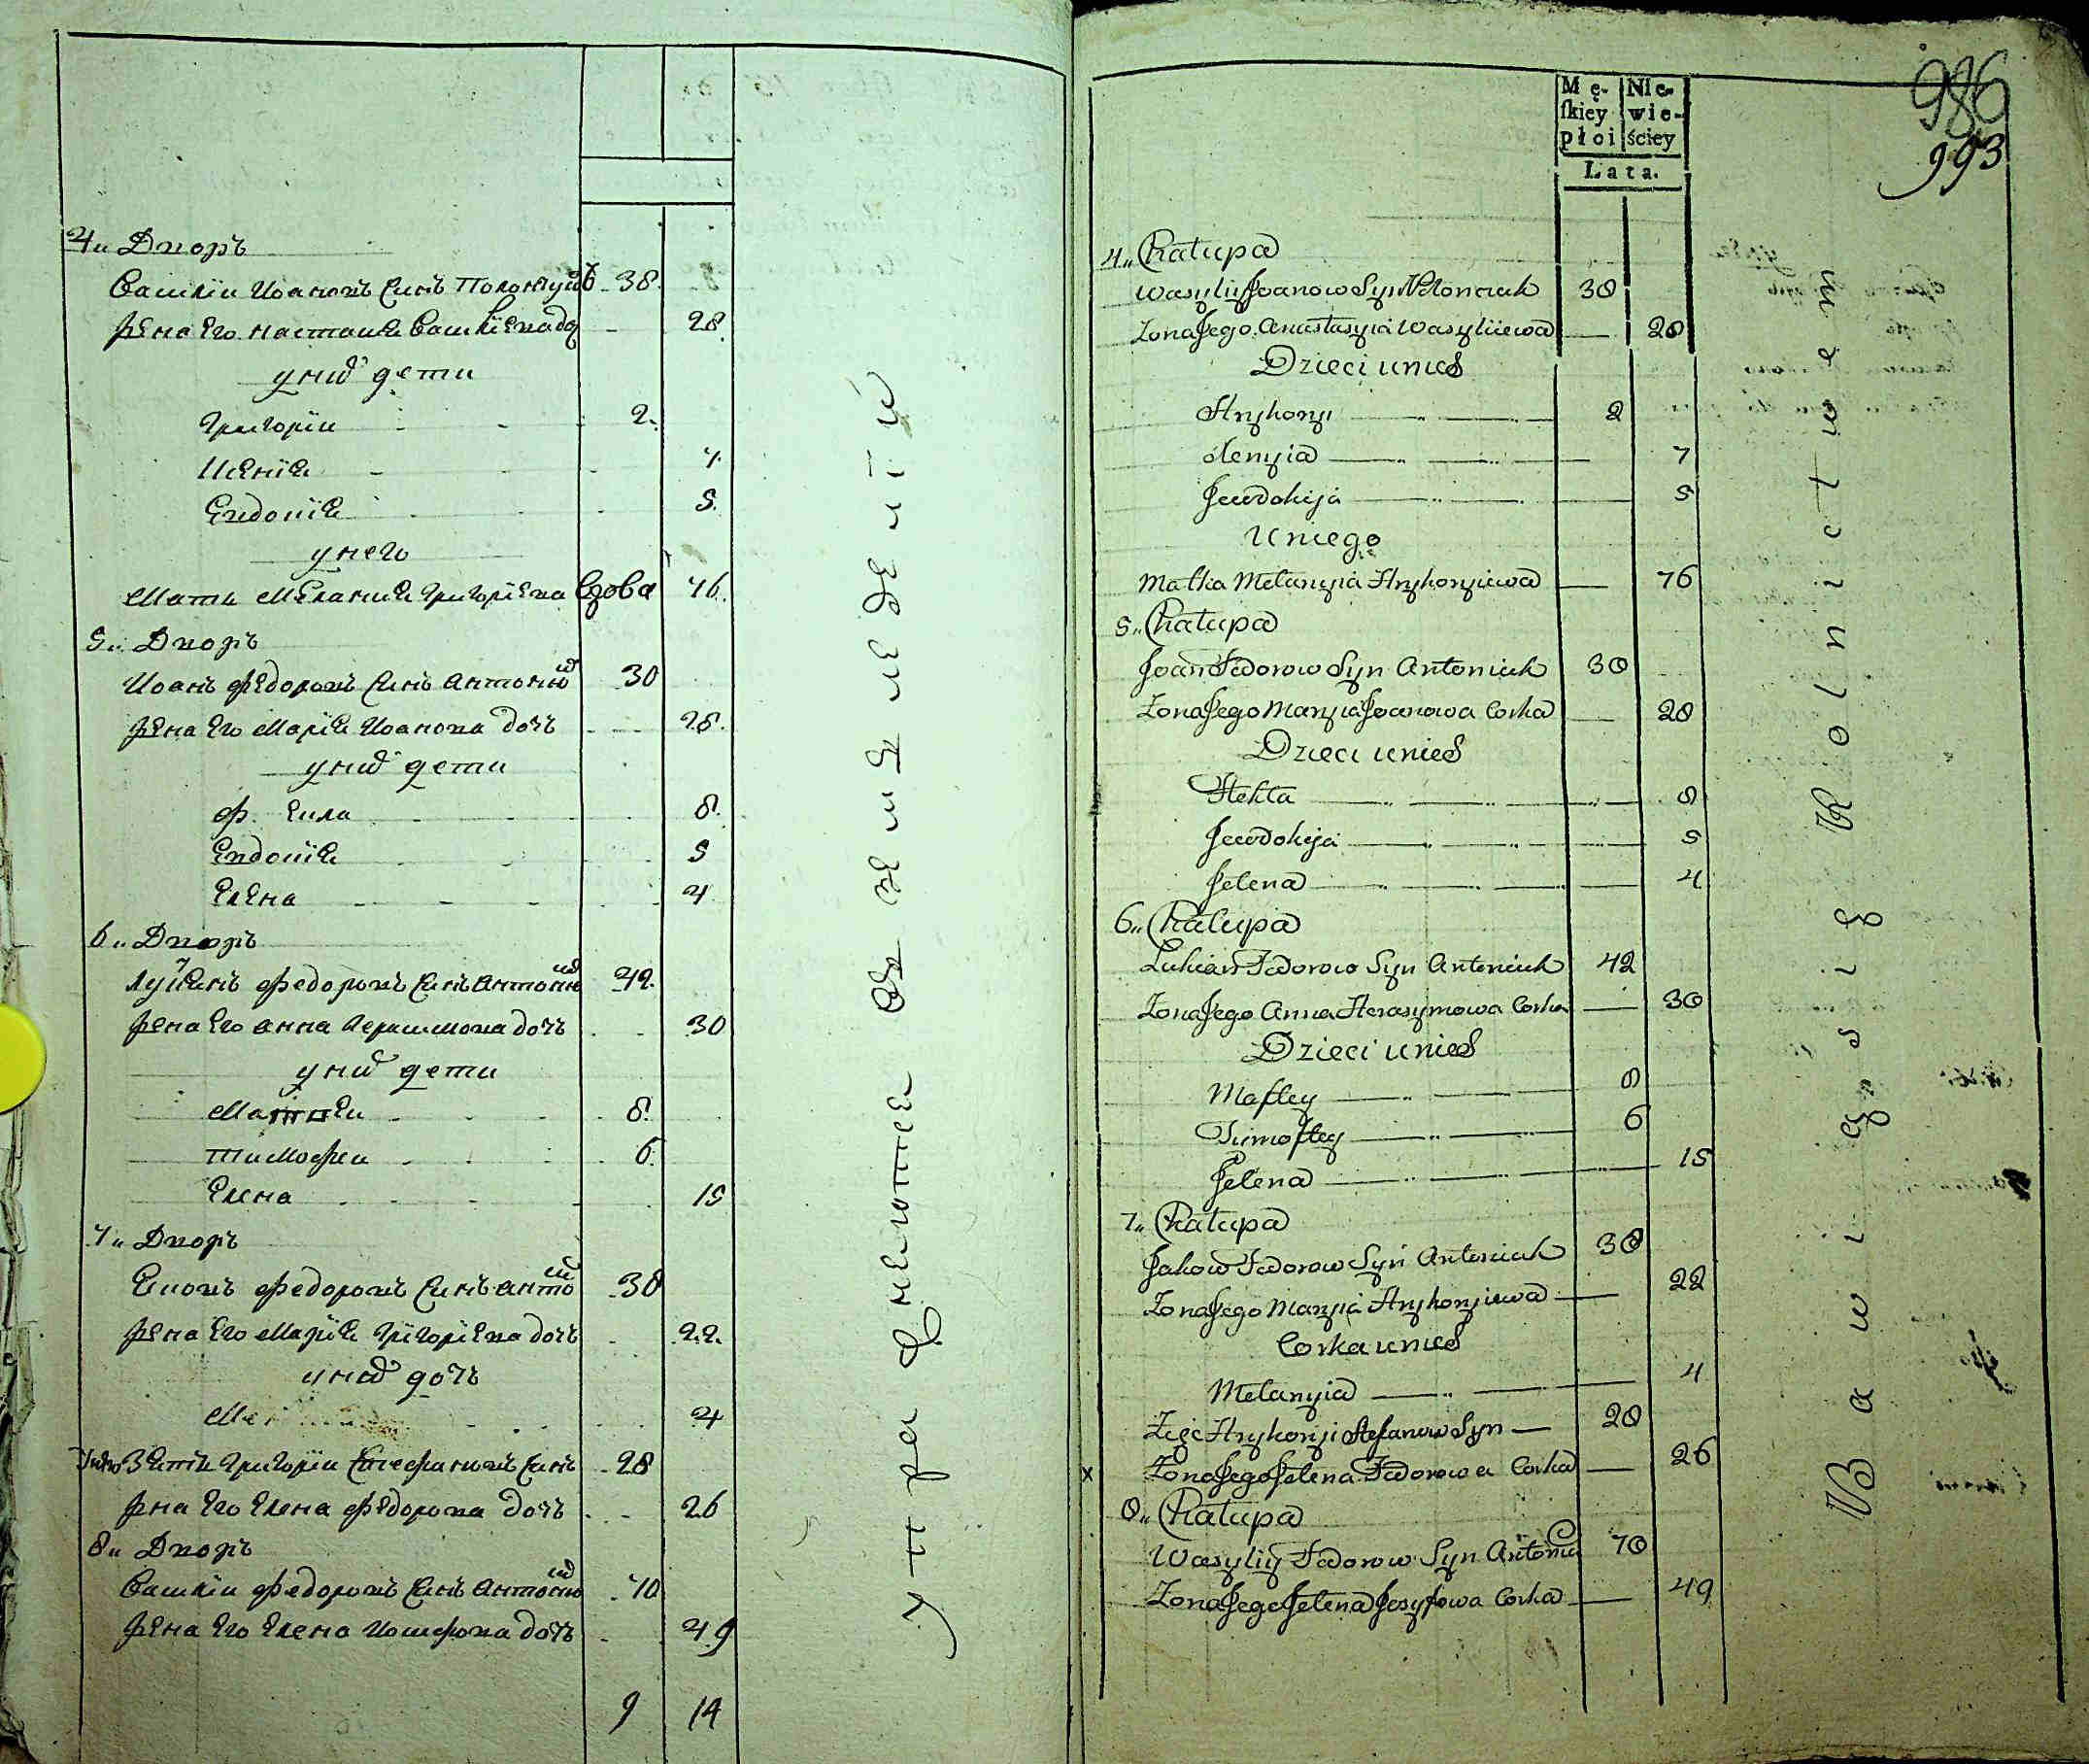 4„ Дворъ
Василiи Иоановъ Синъ Полончукъ 38
Жена Его настасия Василиева до 28
у них дети
Григорiи 2
Ксения 7
Евдокiя 5
у него
Мати Мелания Григорiева вдова 76
5„ Дворъ
Иоанъ Федоровъ Синъ Антоню 30
Жена Его Марiя Иоанова дочъ 28
у них дети
Фекла 8
Евдокiя 5
Елена 4
6„ Дворъ
Лукiянъ Федоровъ Синъ Антоню 42
Жена Его анна Герасимова дочъ 30
у них дети
Матфеи 8
Тимофеи 6
Елена 15
7„ Дворъ
Яковъ Федоровъ Синъ анто 38
Жена Его Марiя Григорiева дочъ 22
у них дочъ
Ме 4
Зять Григорiи Стефановъ Синъ 28
Жна Его Елена Федорова дочъ 26
8„ Дворъ
Василiи Федоровъ Синъ Антоню 70
Жена Его Елена Иосифова дочъ 49
9 14
упражняются въ земледелiи
986
993
Mę- Nie-
ſkiey wie-
płci ściey
Lata.
4„ Chałupa
Wasyliy Joanow Syn Połonczuk 38
Zona Jego Anastasyia Wasyliiewa 28
Dzieci u nich
Hryhoryi 2
Xenyia 7
Jewdokija 5
U niego
Matka Melanyia Hryhoryiewa 76
5„ Chałupa
Joan Fedorow Syn Antoniuk 30
Zona Jego Maryia Joanowa Corka 28
Dzieci u nich
Fekła 8
Jewdokija 5
Jelena 4
6„ Chałupa
Lukian Fedorow Syn Antoniuk 42
Zona Jego Anna Herasymowa Corka 30
Dzieci u nich
Matfey 8
Timoftey 6
Jelena 15
7„ Chałupa
Jakow Fedorow Syn Antoniuk 38
Zona Jego Maryia Hryhoryiewa 22
Corka u nich
Melanyia 4
Zięć Hryhoryi Stefanow Syn 28
x Zona Jego Jelena Fedorowa Corka 26
8„ Chałupa
Wasyliy Fedorow Syn Antoniu 70
Zona Jego Jelena Josyfowa Corka 49
Bawią się Rolnictwem